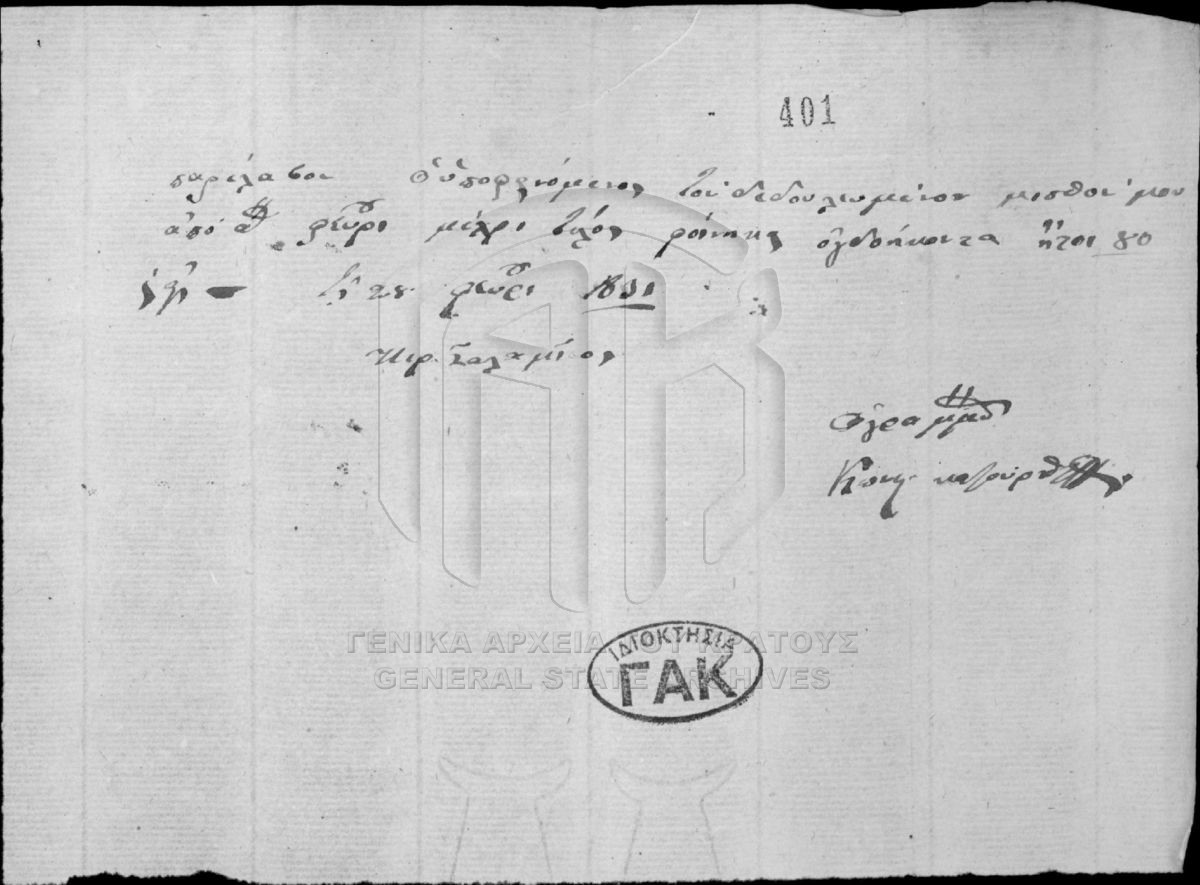 401
παρέλαβον ὁ ὑποφαινόμενος τον δεδουλευμένον μισθόν μου
ἀπό α φευρι μέχρι τέλος φοίνηκες ὀγδοήκοντα ἤτοι 80
τῇ 28 φευρι 1831
Σαλαμίνος
ὁ γραμμ
ΓΕΝΙΚΑ ΑΡΧΕΙΑ ΤΟΥ ΚΡΑΤΟΥΣ
GENERAL STATE ARCHIVES
ΙΔΙΟΚΤΗΣΙΑ
ΓΑΚ